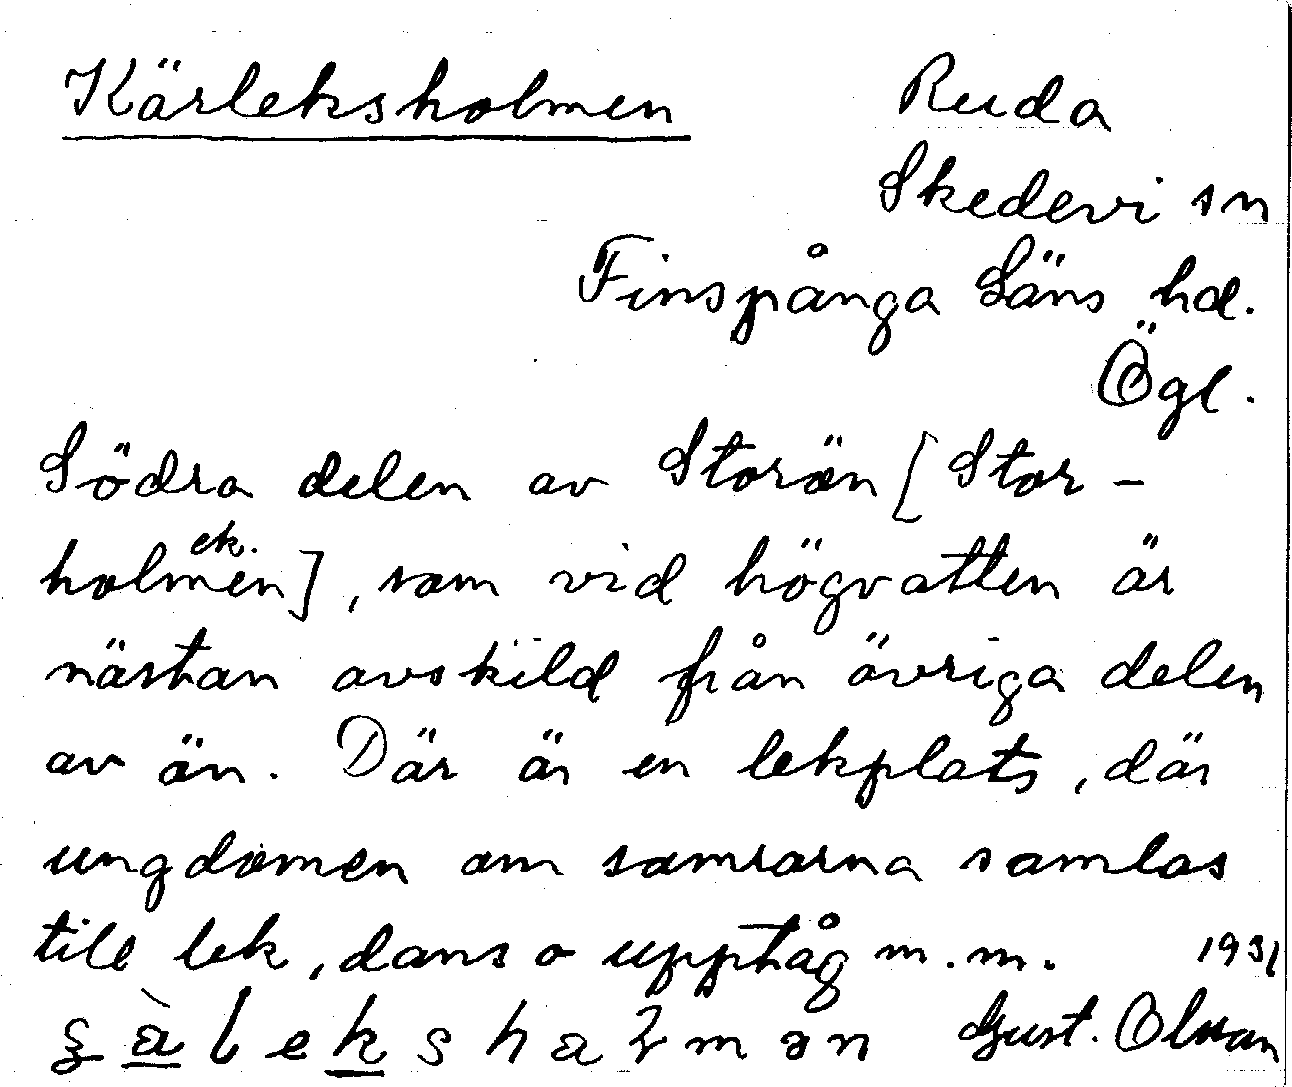 Kärleksholmen Ruda
Skedevi sn
Finspånga Läns hd.
Ögl.
Södra delen av Storön [Stor-
ek.
holmen], som vid högvatten är
nästan avskild från övriga delen
av ön. Där är en lekplats, där
ungdomen om somrarna samlas
till lek, dans o upptåg m.m. 1931
Gust. Olsson